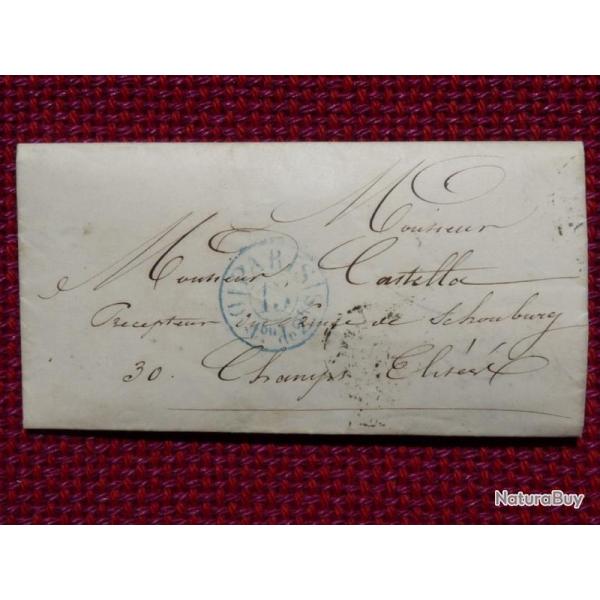 Monsieur
Monsieur Castella
Precepteur Prince de Schonburg
30. Champs Elisées
PARIS
15
NaturaBuy